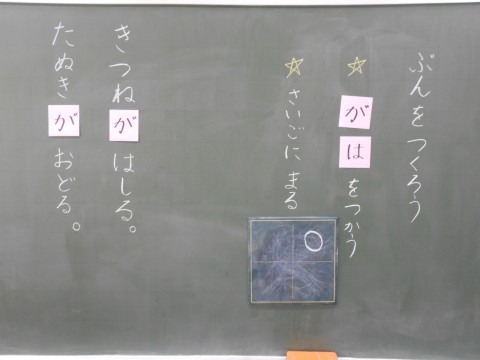 ぶんをつくろう
☆がはをつかう
☆さいごにまる
きつねがはしる。
たぬきがおどる。